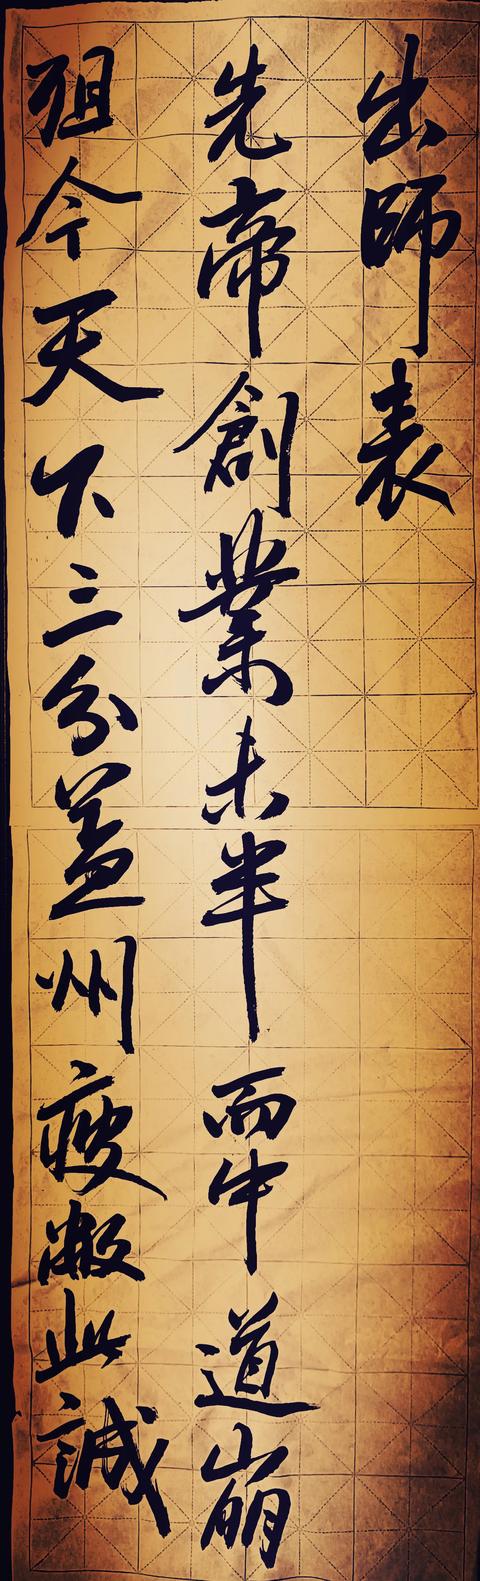 出師表
先帝創業未半而中道崩
殂今天下三分益州疲敝此誠